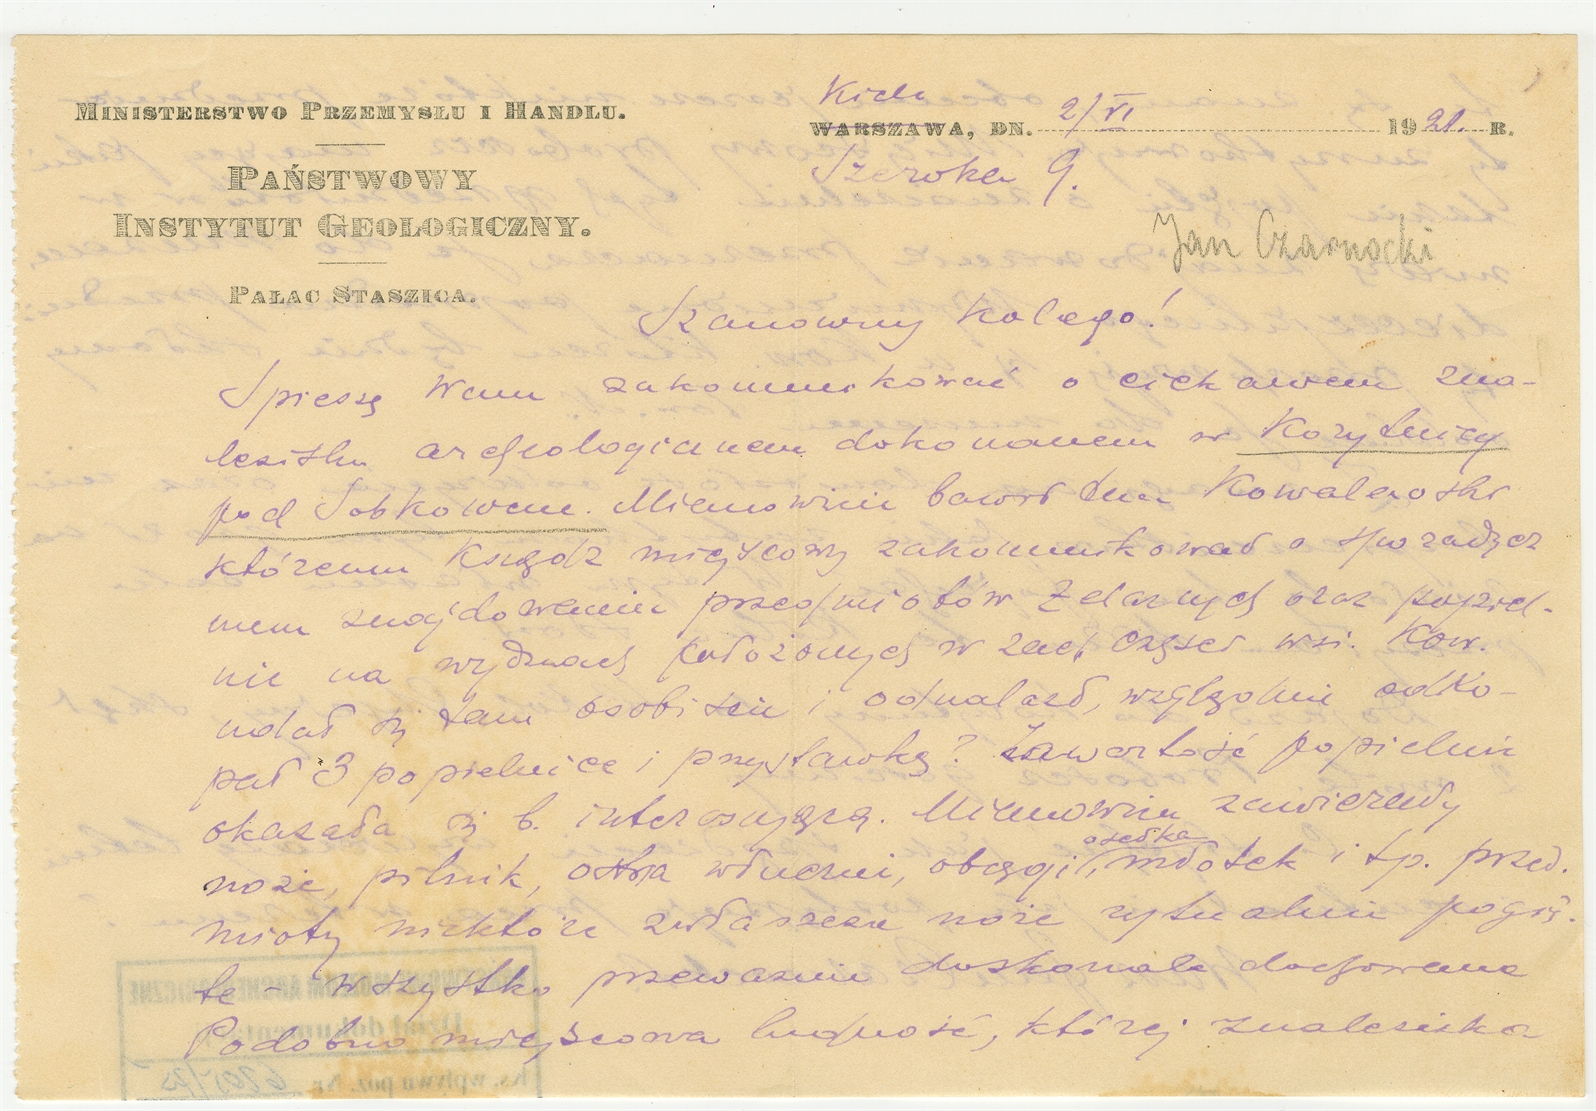 MINISTERSTWO PRZEMYSŁU I HANDLU.
PAŃSTWOWY
INSTYTUT GEOLOGICZNY.
PAŁAC STASZICA.
Kielce
WARSZAWA, DN. 2/VI 1921. R.
Szeroka 9.
Jan Czarnocki
Szanowny Kolego!
Spieszę Wam zakomunikować o ciekawem zna-
lezisku archeologicznem dokonanem w Korytnicy
pod Sobkowem. Mianowicie bawił tam Kowalewski
któremu Ksiądz miejscowy zakomunikował o sporadycz
nem znajdowaniu przedmiotów żelaznych oraz popiel-
nic na wydmach położonych w zach. części wsi. Kow.
udał się tam osobiście i odnalazł, względnie odko-
pał 3 popielnice i przystawkę? Zawartość popielnic
okazała się b. interesującą. Mianowicie zawierały
noże, pilnik, ostrza włóczni, obcęgi, osełka, młotek i tp. przed.
mioty niektóre zwłaszcza noże rytualnie pogię-
te – wszystko przeważnie doskonale dochowane
Podobno miejscowa ludność, której znaleziska